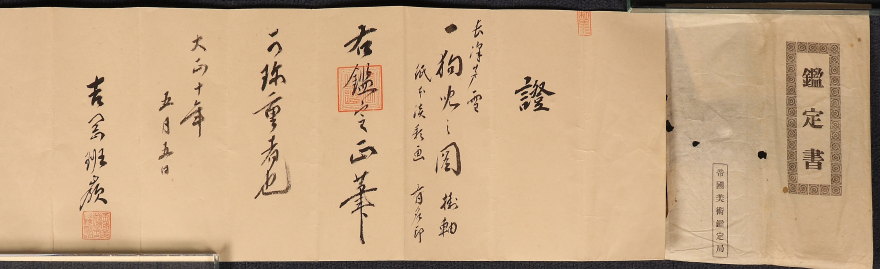 鑑定書
帝國美術鑑定局
證
長澤芦雪
一狗児之圖 横軸
紙本淡彩画 有落印
右鑑定正筆
可珍重者也
大正十年
五月五日